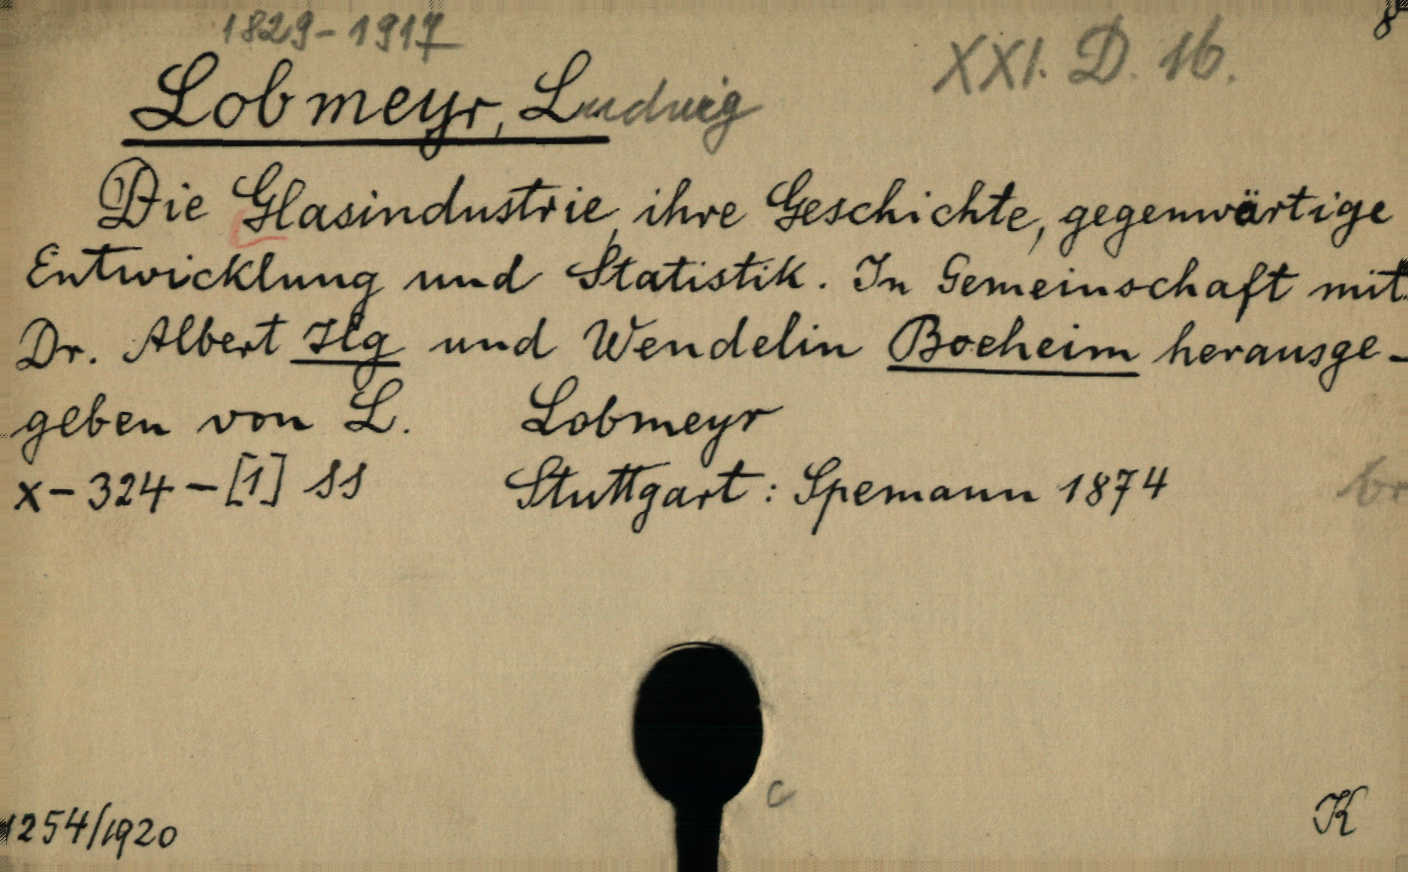 1829-1917
8°
XXI. D. 16.
Lobmeyr, Ludwig
Die Glasindustrie, ihre Geschichte, gegenwärtige
Entwicklung und Statistik. In Gemeinschaft mit
Dr. Albert Ilg und Wendelin Boeheim herausge-
geben von L. Lobmeyr
x-324-[1] SS Stuttgart: Spemann 1874
br
c
1254/1920
K